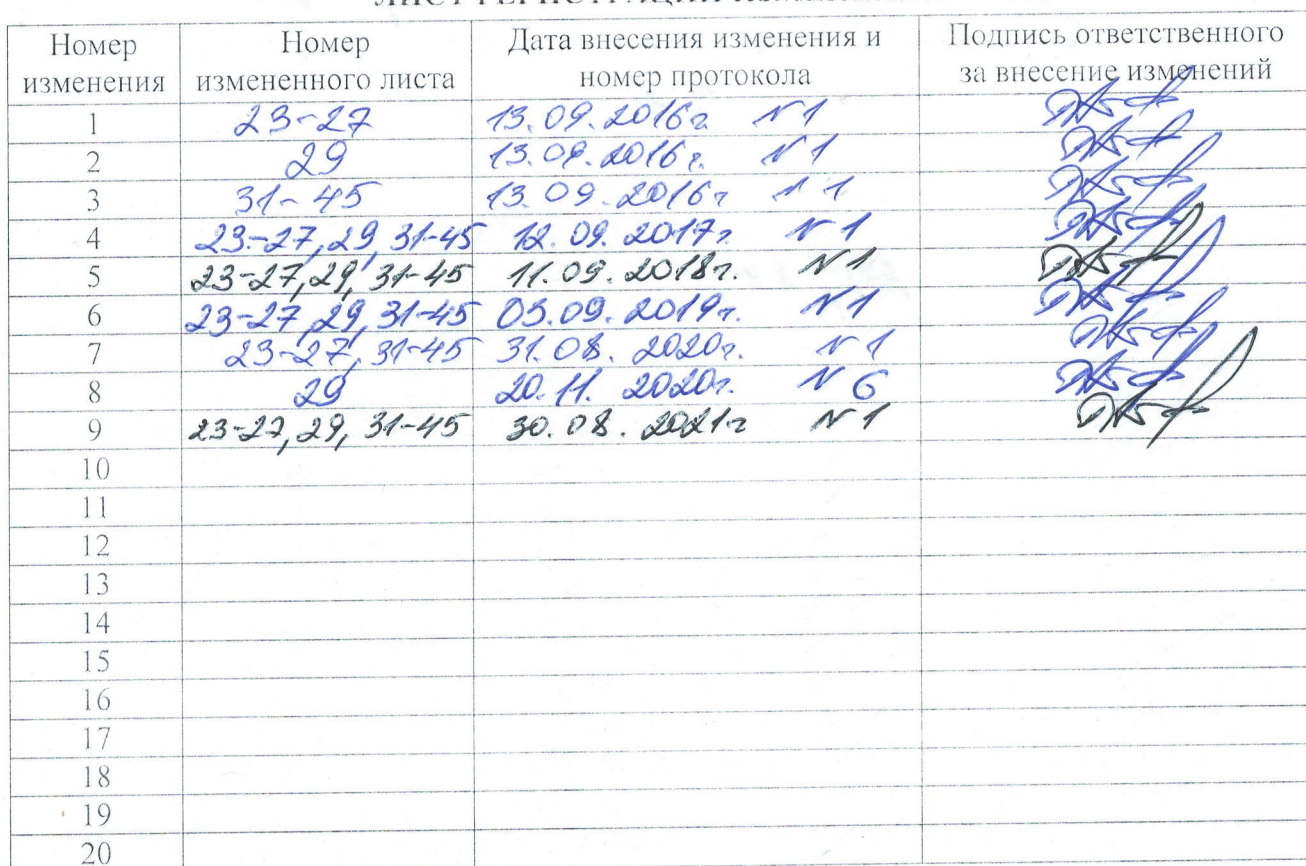 ЛИСТ РЕГИСТРАЦИИ
Номер изменения Номер измененного листа Дата внесения изменения и номер протокола Подпись ответственного за внесение изменений
1 23-27 13.09.2016г N1
2 29 13.09.2016г. N1
3 31-45 13.09.2016г N1
4 23-27, 29, 31-45 12.09.2017г N1
5 23-27, 29, 31-45 11.09.2018г. N1
6 23-27, 29, 31-45 03.09.2019г. N1
7 23-27, 31-45 31.08.2020г. N1
8 29 20.11.2020г. N6
9 23-27, 29, 31-45 30.08.2021г N1
10
11
12
13
14
15
16
17
18
19
20